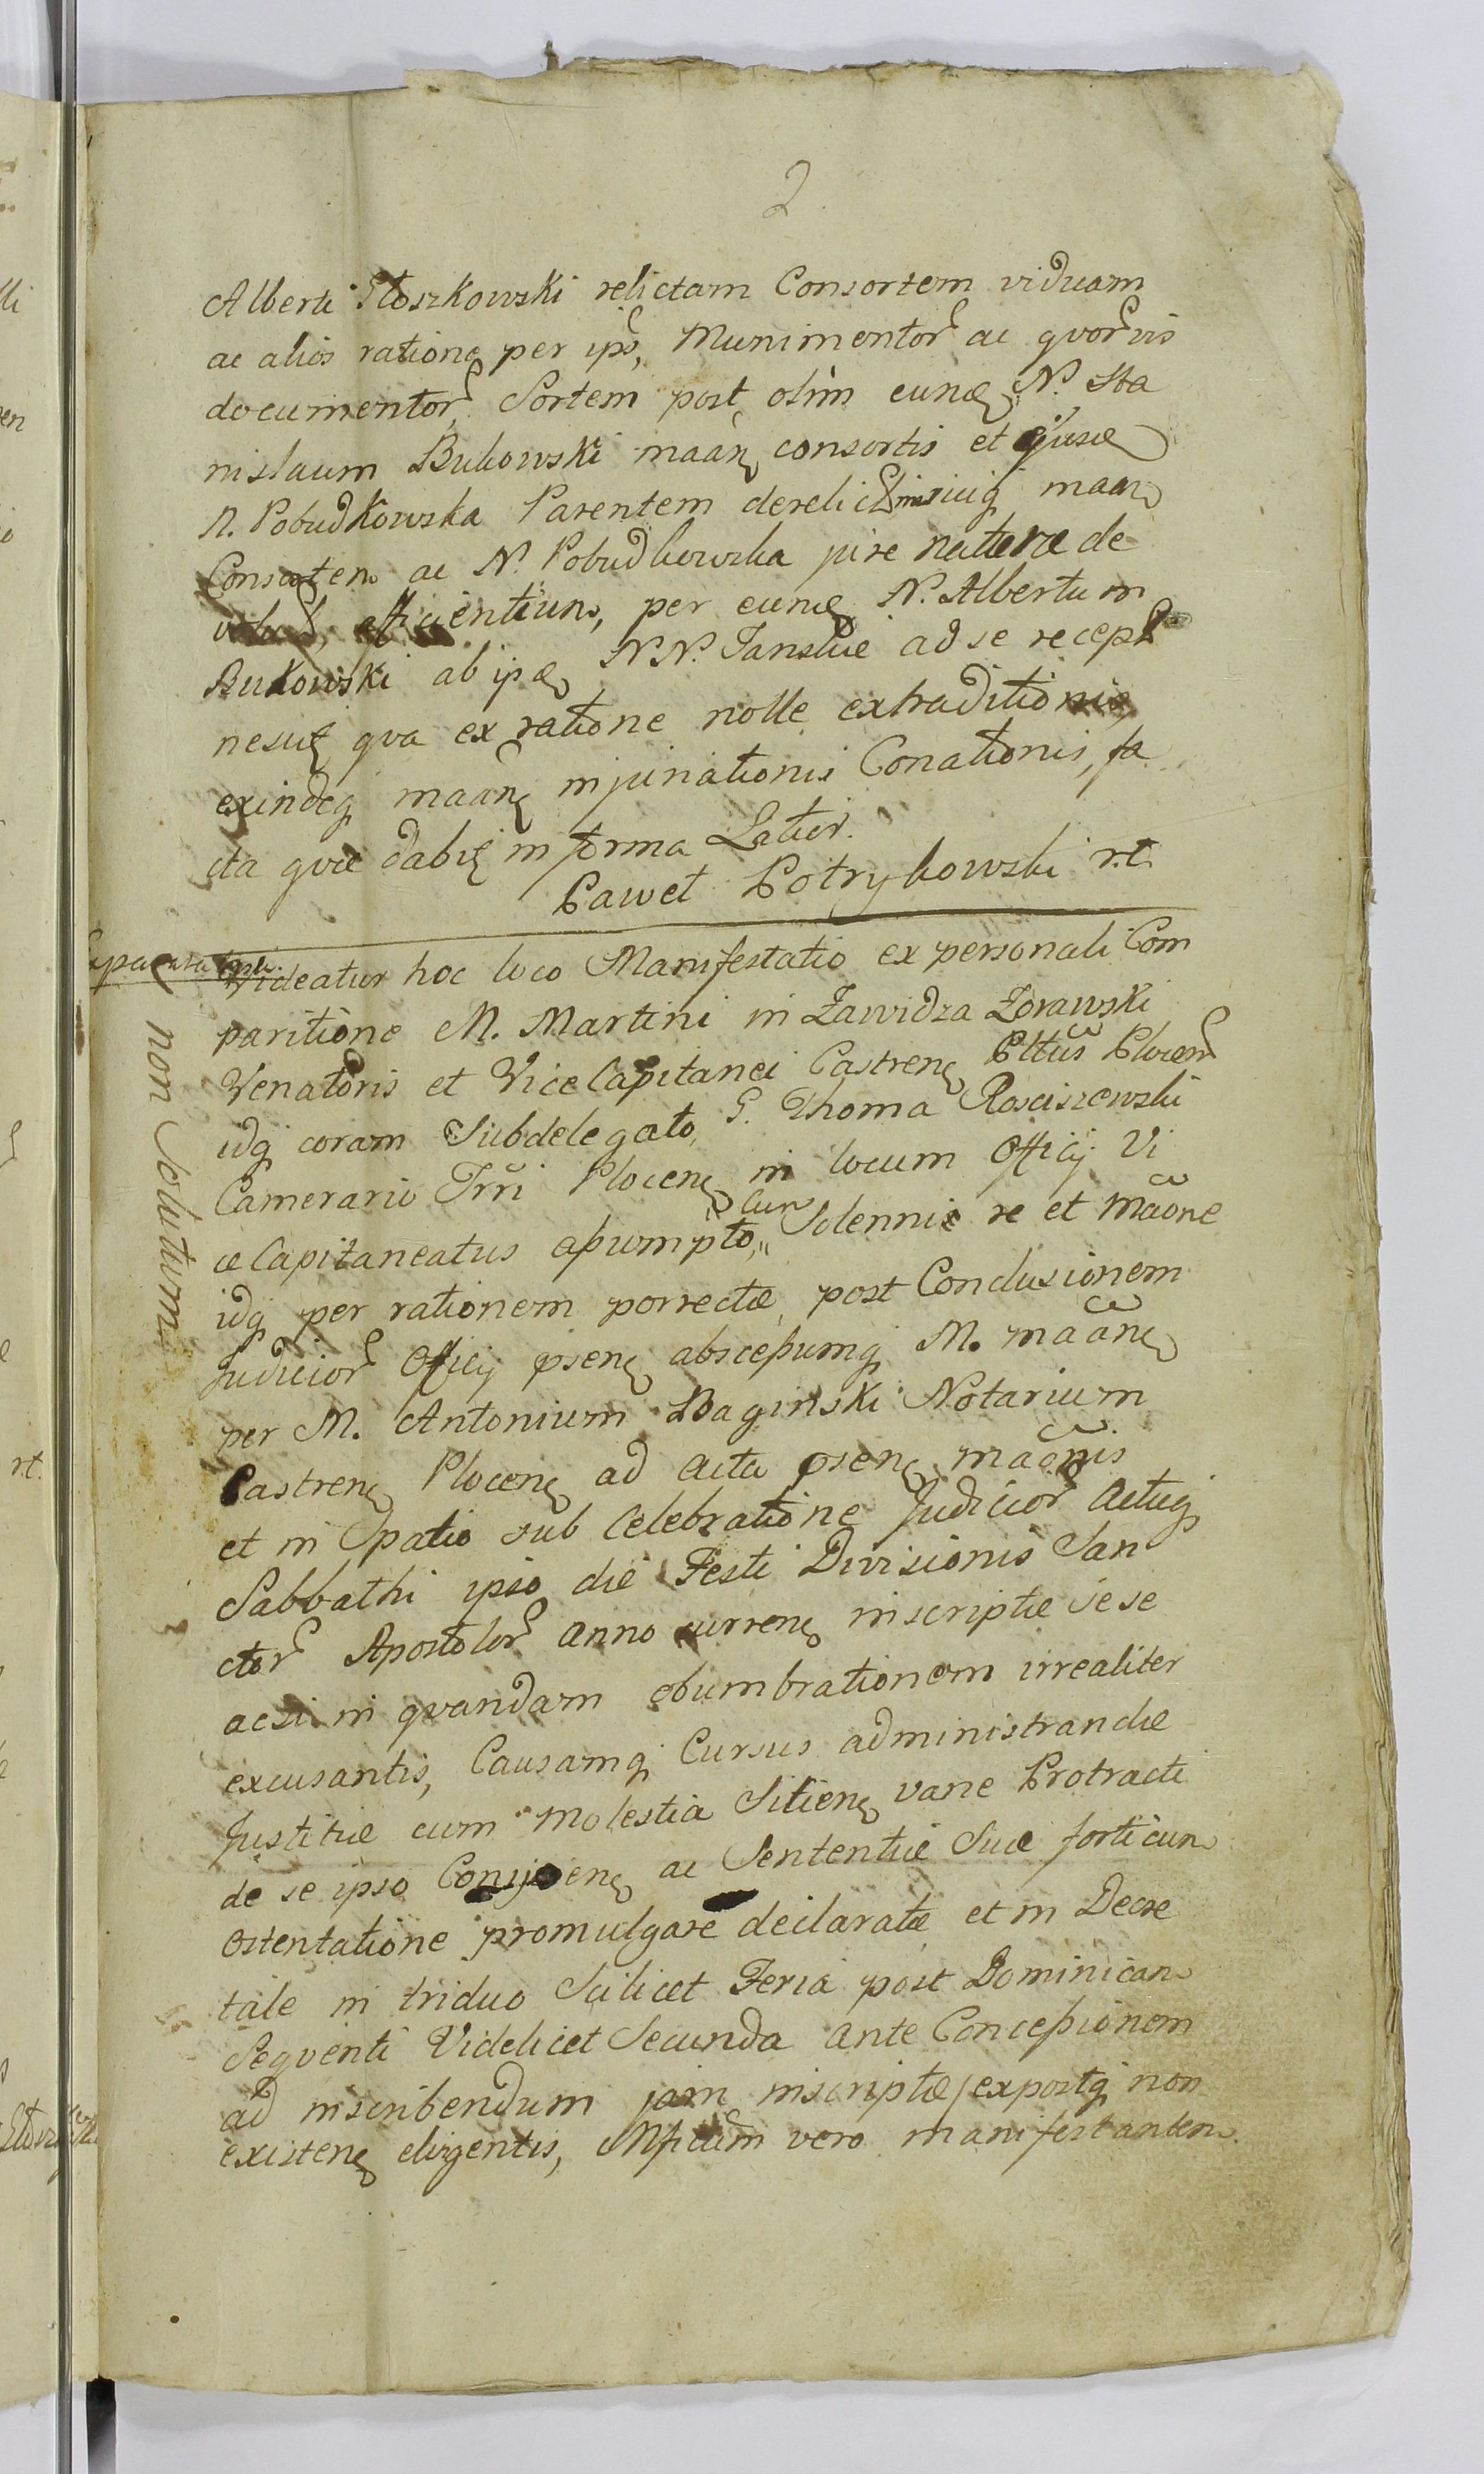 2
Alberti Płoszkowski relictam Consortem viduam
ac alios ratione per ips, Munimentor ac qvorvis
documentor, Sortem post olim eund N. Sta
nislaum Bukowski maan consortis et
N. Pobudkowska Parentem derelict maan
Consortem ac N. Pobudkowska jure naturæ de
efficientium, per eund N. Albertum
Bukowski ab ips NN. Janskie ad se recept
qva ex ratione nolle extraditionis
exindeq maan injuriationis Conationis, fa
cta qvæ dabit in forma Latior.
Paweł Potrykowski r.t.
Videatur hoc loco Manifestatio ex personali Com
paritione M. Martini in Zawidza Zorawski
Venatoris et ViceCapitanei Castren Pltus Plocen
idq coram Subdelegato, G. Thoma Rosciszewski
Camerario Trri Plocen in locum Officij Vi
ceCapitaneatus assumpto, cum Solennis re et maone
idq per rationem porrectæ, post Conclusionem
Judicior Officij psen abscessumq M. maan
per M. Antonium Baginski Notarium
Castren Plocen ad acta psen maonis
et in Spatio sub Celebratione Judicior Actuq
Sabbathi ipso die Festi Divisionis San
ctor Apostolor anno curren inscriptæ sese
acsi in qvandam obumbrationem irrealiter
excusantis, Causamq Cursus administrandæ
Justitiæ cum Molestia Sitien vane Protracti
de se ipso ac Sententiæ Suæ forti cum
ostentatione promulgare declaratæ et in Decre
tale in triduo Scilicet Feria post Dominicam
Seqventi Videlicet Secunda ante Concessionem
ad inscribendum jam inscriptæ, expostq non
existen dirigentis, vero manifestantem
non Solutum